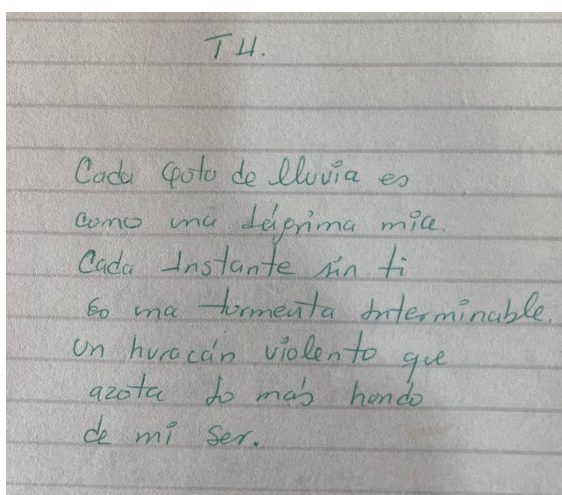 TU.
Cada gota de lluvia es
como una lágrima mía.
Cada Instante sin ti
es una tormenta Interminable.
un huracán violento que
azota lo más hondo
de mi ser.